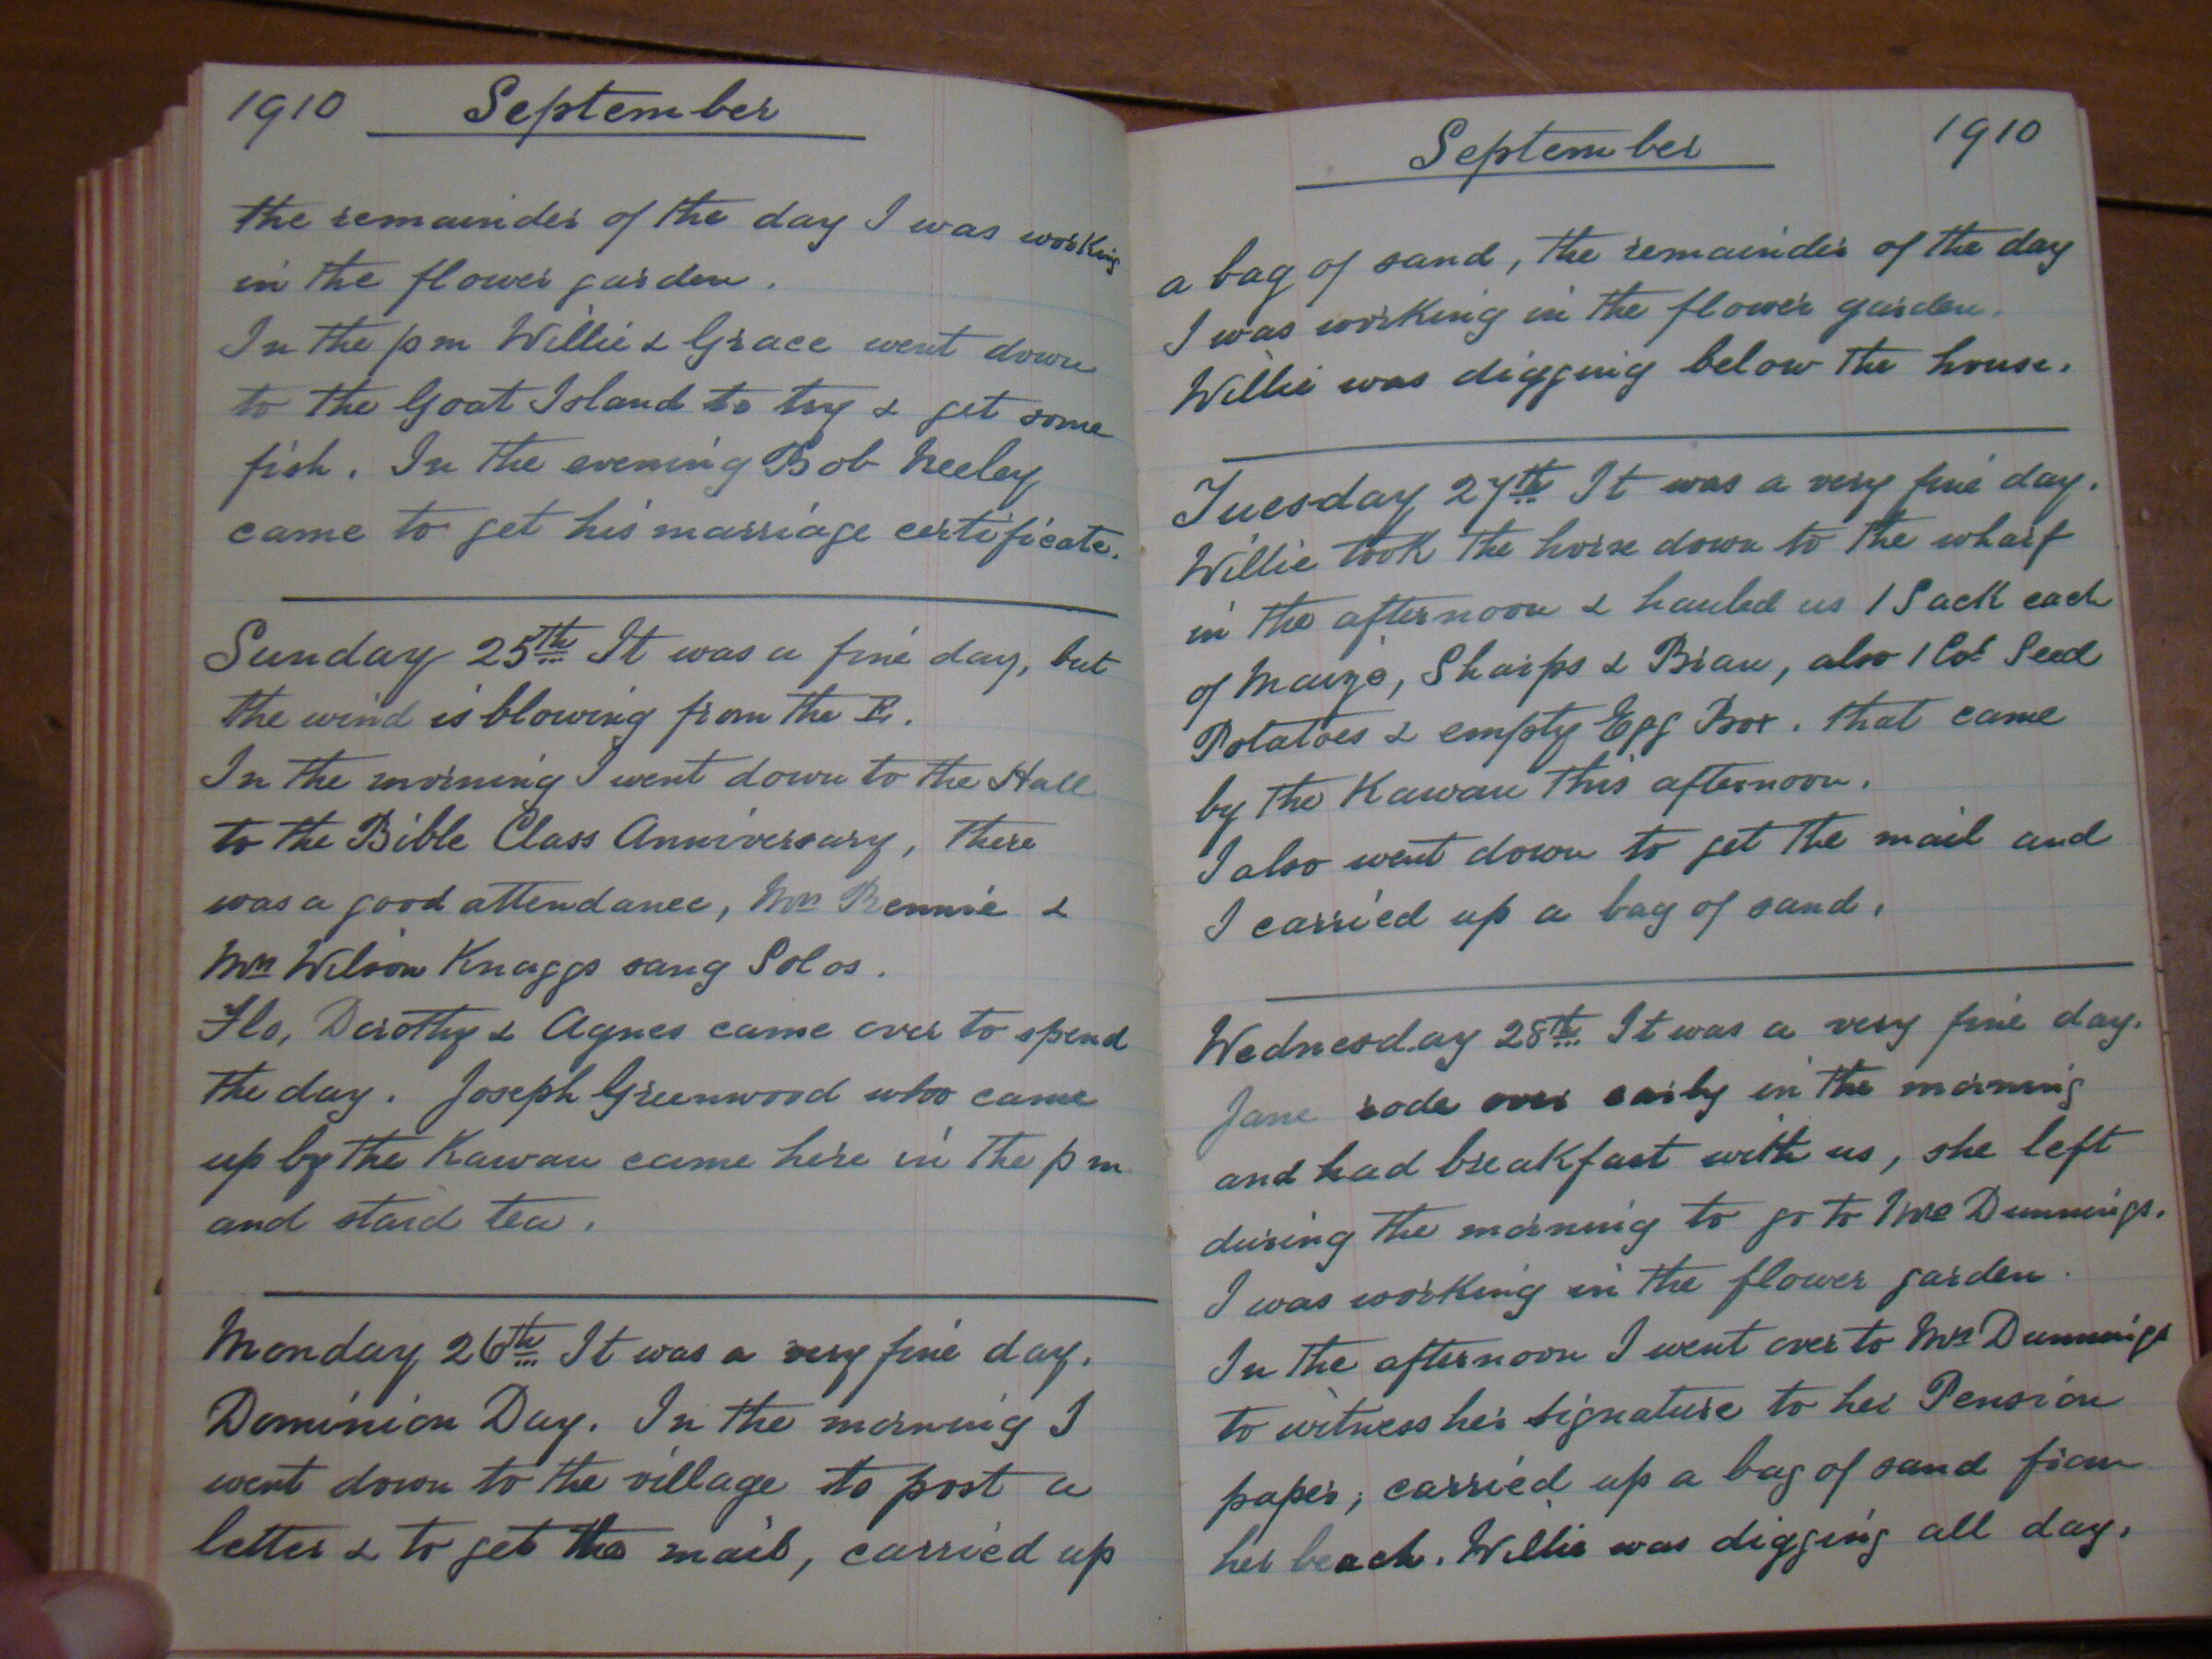 1910 September
the remainder of the day I was working
in the flower garden.
In the pm Willie & Grace went down
to the Goat Island to try & get some
fish. In the evening Bob Neeley
came to get his marriage certificate.
Sunday 25th It was a fine day, but
the wind is blowing from the E.
In the morning I went down to the Hall
to the Bible Class Anniversary, there
was a good attendance, Mrs Rennie &
Mrs Wilson Knaggs sang Solos.
Flo, Dorothy & Agnes came over to spend
the day. Joseph Greenwood who came
up by the Kawau came here in the pm
and staid tea.
Monday 26th It was a very fine day.
Dominion Day. In the morning I
went down to the village to post a
letter & to get the mail, carried up
September 1910
a bag of sand, the remainder of the day
I was working in the flower garden.
Willie was digging below the house.
Tuesday 27th It was a very fine day.
Willie took the horse down to the wharf
in the afternoon & hauled us 1 Sack each
of Maize, Sharps & Bran, also 1 Cwt Seed
Potatoes & empty Egg Box. that came
by the Kawau this afternoon.
I also went down to get the mail and
I carried up a bag of sand.
Wednesday 28th It was a very fine day.
Jane rode over early in the morning
and had breakfast with us, she left
during the morning to go to Mrs Dunnings.
I was working in the flower garden.
In the afternoon I went over to Mrs Dunnings
to witness her signature to her Pension
paper; carried up a bag of sand from
her beach. Willie was digging all day.